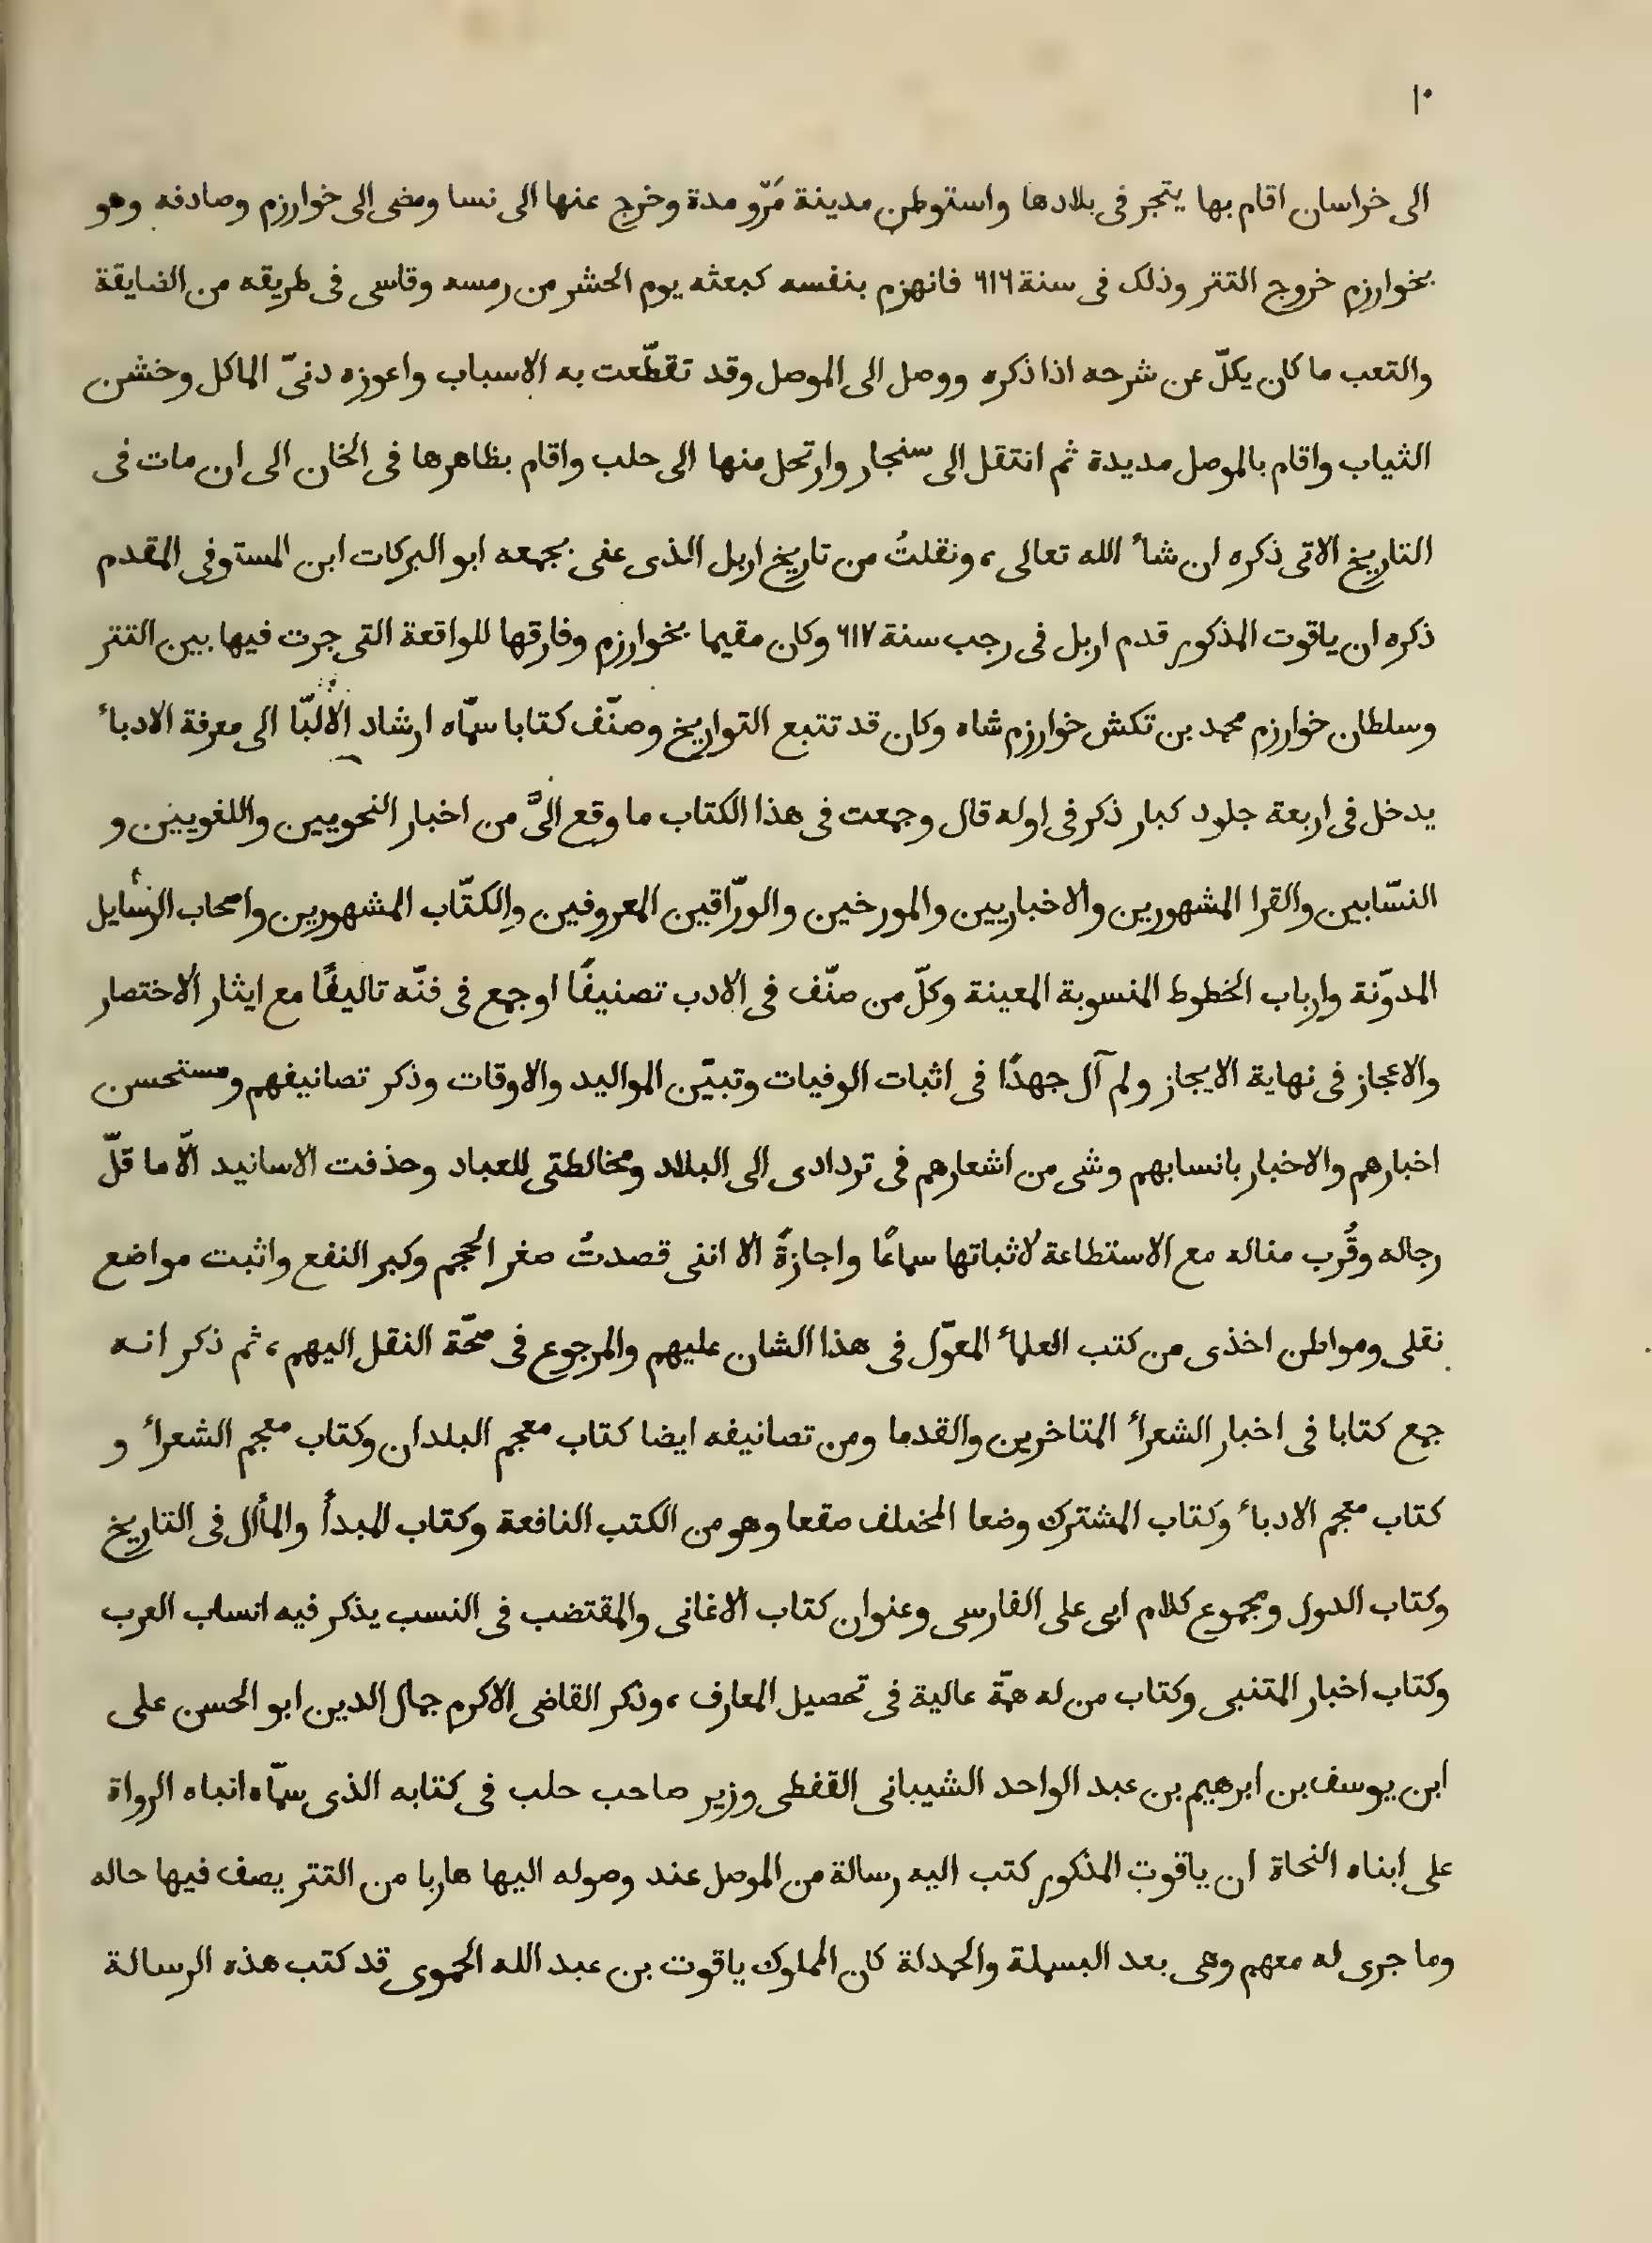 ١٠
الى خراسان اقام بها يتجر فى بلادها واستوطن مدينة مَرّو مدة وخرج عنها الى نسا ومضى الى خوارزم وصادفه وهو
بخوارزم خروج التتر وذلك فى سنة ٦١٦ فانهزم بنفسه كبعثه يوم الحشر من رمسه وقاسى فى طريقه من الضايقة
والتعب ما كان يكلّ عن شرحه اذا ذكره ووصل الى الموصل وقد تقطّعت به الاسباب واعوزه دنىّ الماكل وخشن
الثياب واقام بالموصل مديدة ثم انتقل الى سنجار وارتحل منها الى حلب واقام بظاهرها فى الخان الى ان مات فى
التاريخ الاتى ذكره ان شاء الله تعالى، ونقلتُ من تاريخ اربل الذى عنى بجمعه ابو البركات ابن المستوفى المقدم
ذكره ان ياقوت المذكور قدم اربل فى رجب سنة ٦١٧ وكان مقيما بخوارزم وفارقها للواقعة التى جرت فيها بين التتر
وسلطان خوارزم محمد بن تكش خوارزم شاه وكان قد تتبع التواريخ وصنّف كتابا سمّاه ارشاد الألبّا الى معرفة الادباء
يدخل فى اربعة جلود كبار ذكر فى اوله قال وجمعت فى هذا الكتاب ما وقع الىَّ من اخبار النحويين واللغويين و
النسّابين والقرا المشهورين والاخباريين والمورخين والورّاقين المعروفين والكتّاب المشهورين واصحاب الرسٔايل
المدوّنة وارباب الخطوط المنسوبة المعينة وكلّ من صنّف فى الادب تصنيفًا او جمع فى فنّه تاليفًا مع ايثار الاختصار
والاعجاز فى نهاية الايجاز ولم آل جهدًا فى اثبات الوفيات وتبيّن المواليد والاوقات وذكر تصانيفهم ومستحسن
اخبارهم والاخبار بانسابهم وشى من اشعارهم فى تردادى الى البلاد ومخالطتى للعباد وحذفت الاسانيد الّا ما قلّ
رجاله وقُرب مناله مع الاستطاعة لاثباتها سماعًا واجازةً الا اننى قصدتُ صغر الحجم وكبر النفع واثبت مواضع
نقلى ومواطن اخذى من كتب العلماء المعوّل فى هذا الشان عليهم والمرجوع فى صحّة النقل اليهم، ثم ذكر انه
جمع كتابا فى اخبار الشعراء المتاخرين والقدما ومن تصانيفه ايضا كتاب معجم البلدان وكتاب معجم الشعراء و
كتاب معجم الادباء وكتاب المشترك وضعا المختلف صقعا وهو من الكتب النافعة وكتاب المبدأ والمأل فى التاريخ
وكتاب الدول ومجموع كلام ابى على الفارسى وعنوان كتاب الاغانى والمقتضب فى النسب يذكر فيه انساب العرب
وكتاب اخبار المتنبى وكتاب من له همّة عالية فى تحصيل المعارف، وذكر القاضى الاكرم جمال الدين ابو الحسن على
ابن يوسف بن ابرهيم بن عبد الواحد الشيبانى القفطى وزير صاحب حلب فى كتابه الذى سمّاه انباه الرواة
على ابناه النحاة ان ياقوت المذكور كتب اليه رسالة من الموصل عند وصوله اليها هاربا من التتر يصف فيها حاله
وما جرى له معهم وهى بعد البسملة والحمدلة كان المملوك ياقوت بن عبد الله الحموى قد كتب هذه الرسالة